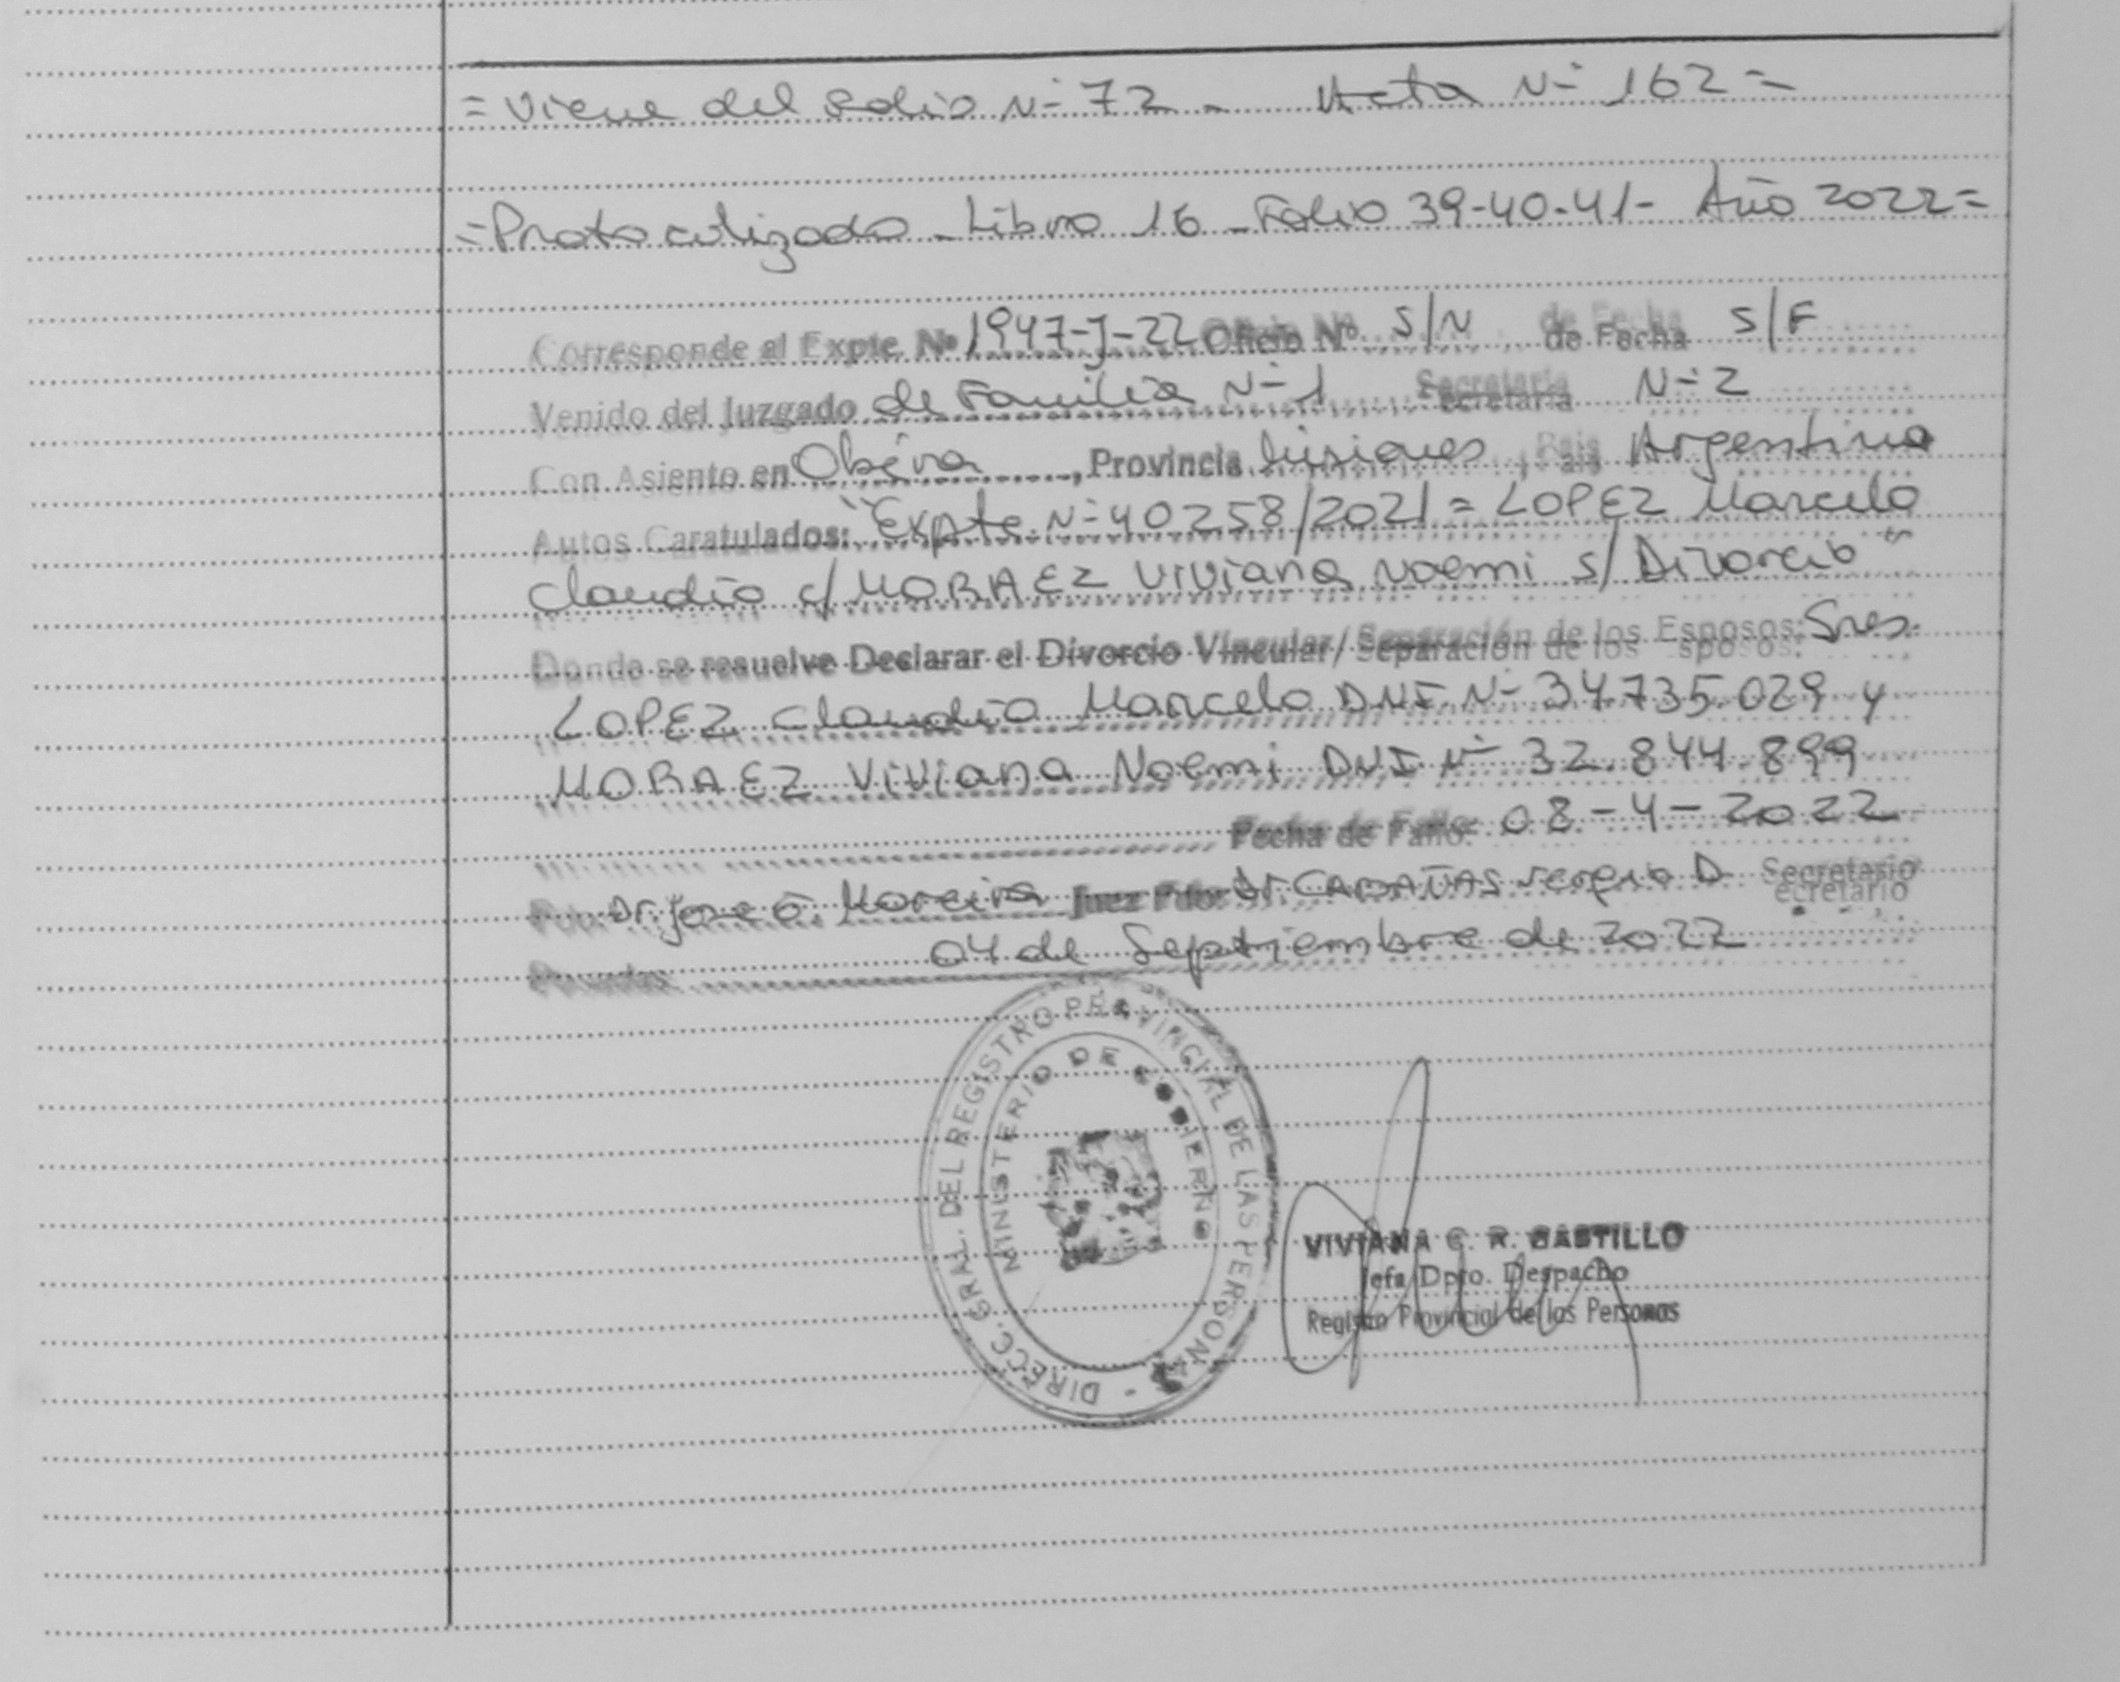 = Viene del Folio N- 72 - Acta N- 162 =
= Protocolizado - Libro 16 - Folio 39-40-41- Año 2022 =
Corresponde al Expte Nº 1947-J-22 Oficio Nº S/N de Fecha S/F
Venido del Juzgado de Familia N- 1 Secretaria N- 2
Con Asiento en Oberá, Provincia Misiones, Pais Argentina
Autos Caratulados: "Expte. N- 40258/2021 = LOPEZ Marcelo
Claudio c/ MORAEZ Viviana Noemi s/ Divorcio"
Donde se resuelve Declarar el Divorcio Vincular/ Separación de los Esposos: Sres.
LOPEZ Claudio Marcelo DNI. N- 34.735.029 y
MORAEZ Viviana Noemi DNI N- 32.844.899
Fecha de Fallo: 08-4-2022
Fdo. Dr. Jose G. Moreira Juez Fdo: Dr. CABAÑAS Sergio D Secretario
Posadas 04 de Septiembre de 2022
DIRECC. GRAL. DEL REGISTRO PROVINCIAL DE LAS PERSONAS
MINISTERIO DE GOBIERNO
VIVIANA C. R. CASTILLO
Jefa Dpto. Despacho
Registro Provincial de las Personas